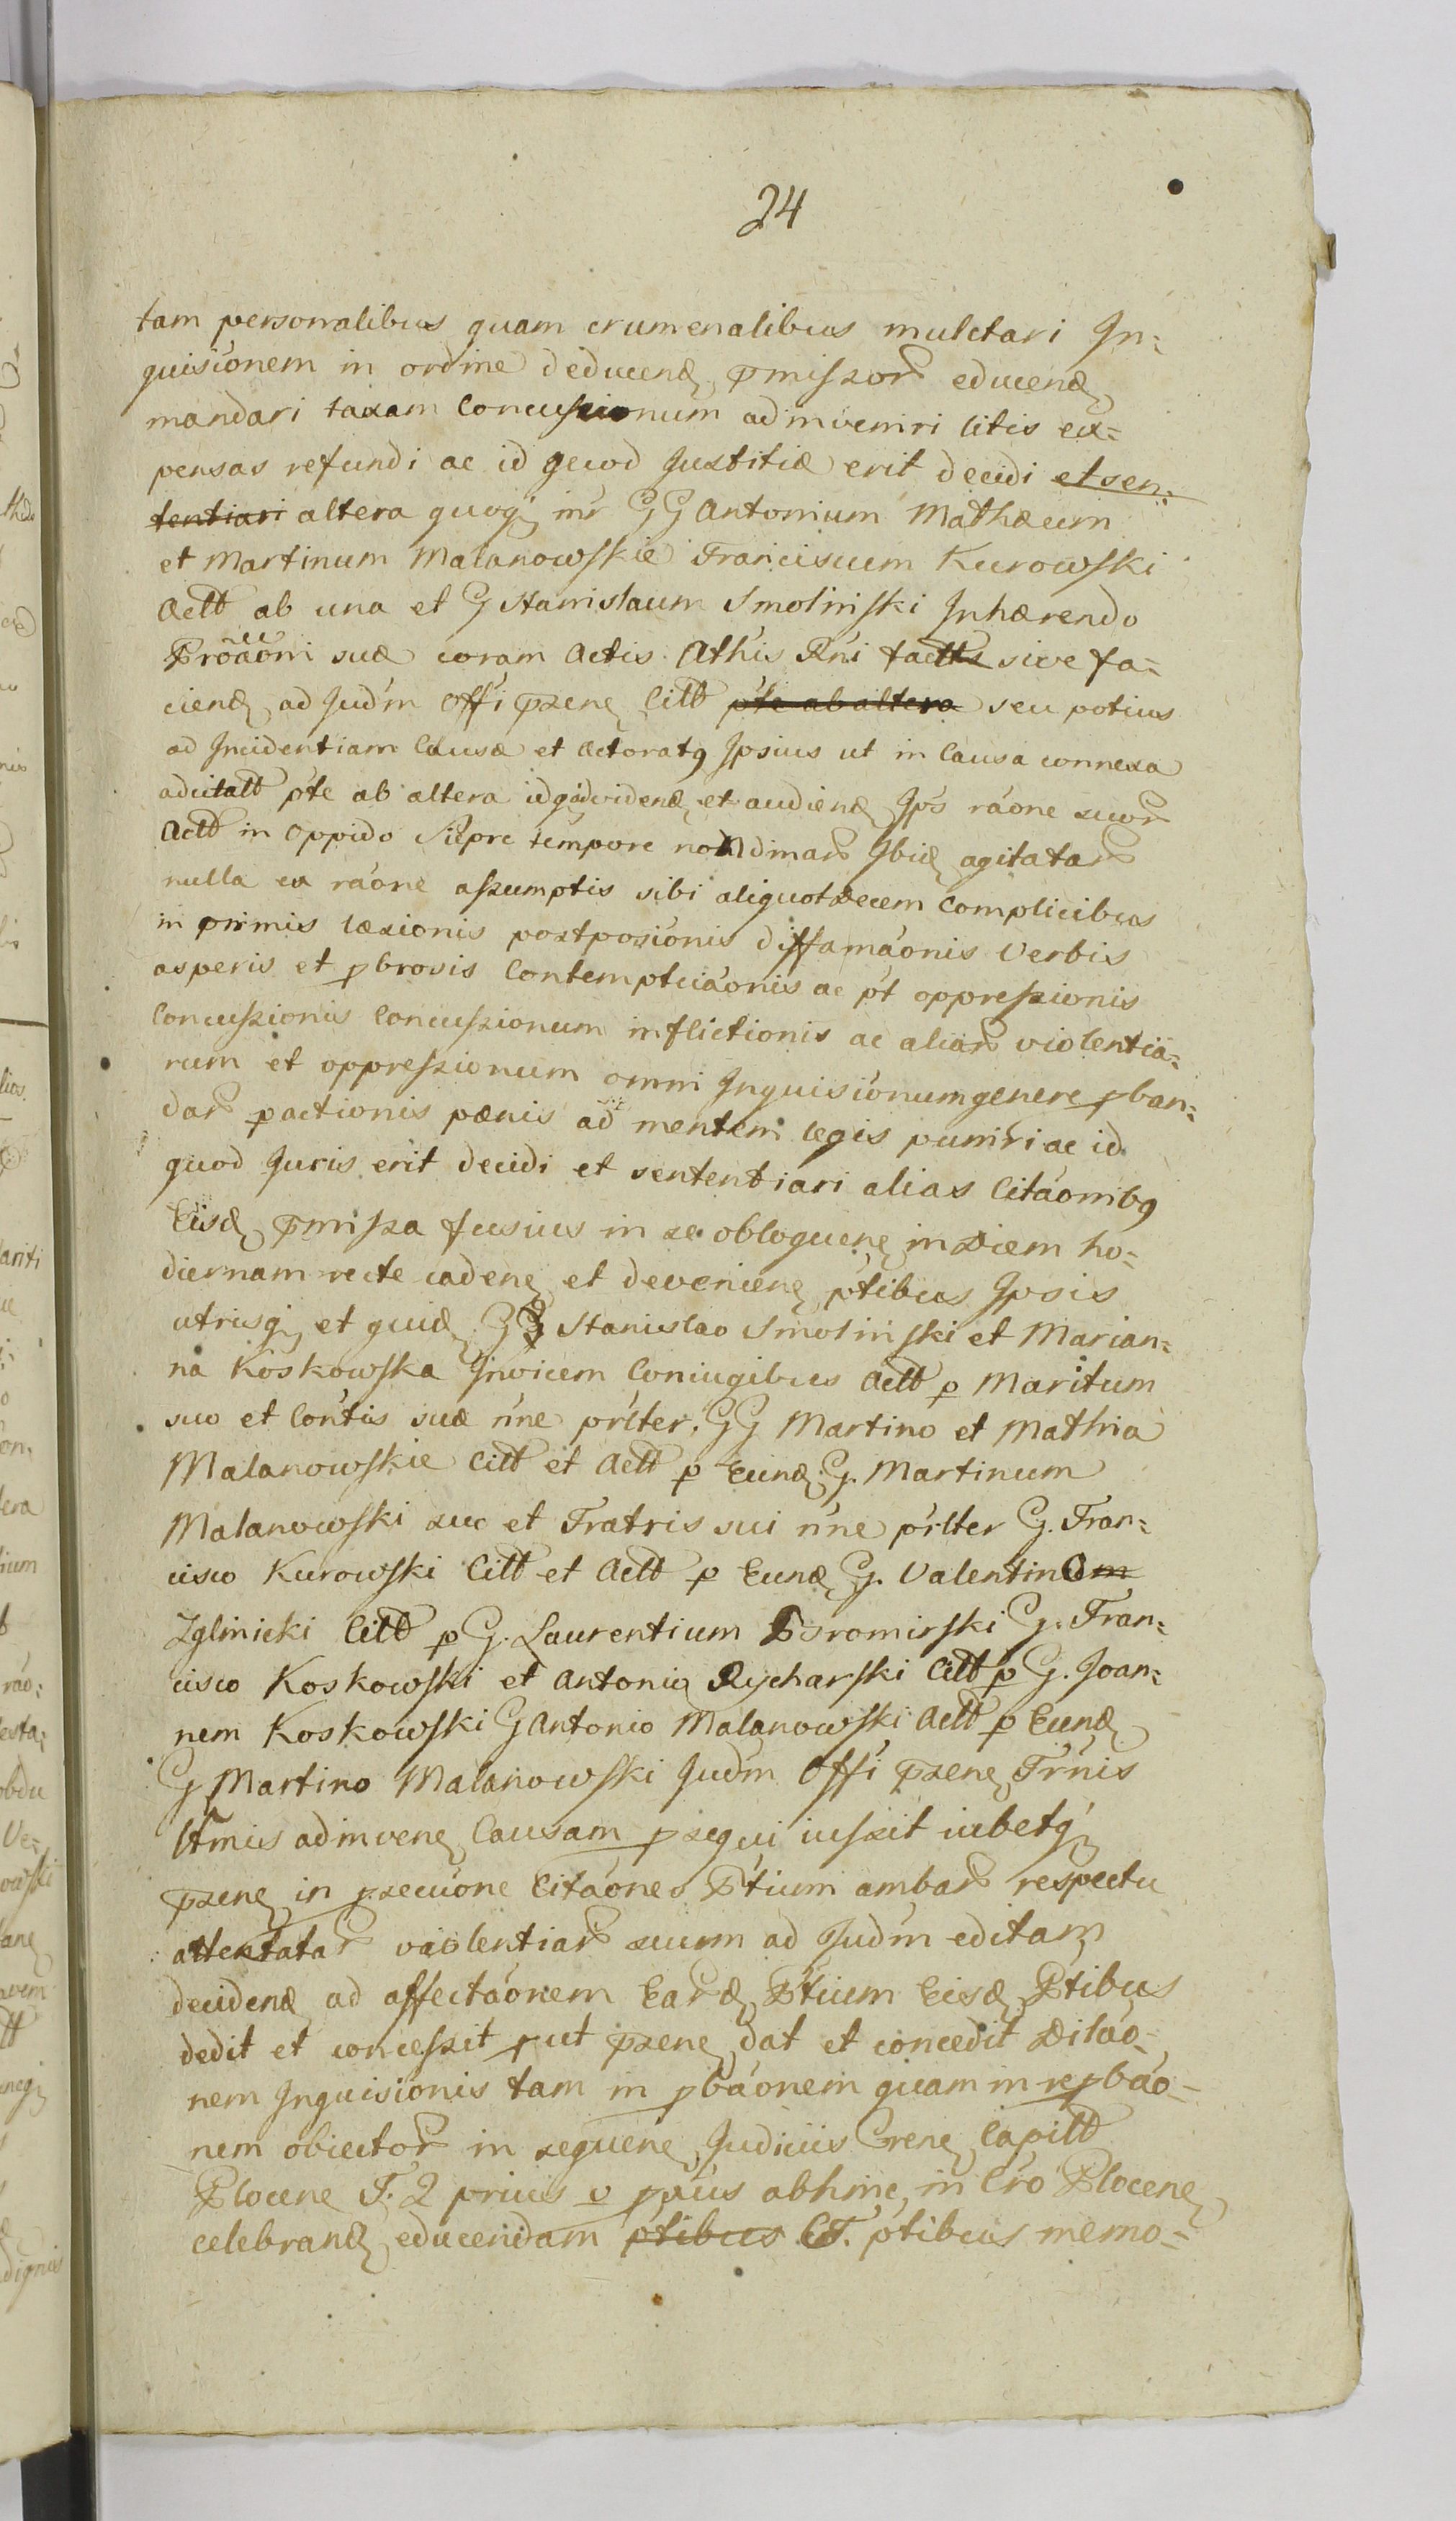 24
tam personalibus quam crumenalibus mulctari In=
quisionem in ordine deducend pmissor educend
mandari taxam Concussionum adinveniri litis ex=
pensas refundi ac id quod Justitiæ erit decidi et sen=
tentiari altera quoq inr GG Antonium Mathæum
et Martinum Malanowskie Franciscum Kurowski
Actt ab una et G Stanislaum Smolinski Inhærendo
suæ coram Actis sive fa=
ciend ad Judm Offi pzene Citt pte ab altera seu potius
ad Incidentiam Causæ et Actoratq Ipsius ut in Causa connexa
adcitatt pte ab altera et audiend Ips ráone suor
Actt in Oppido Sierpc tempore Ibid agitatar
nulla ex ráone assumptis sibi aliquotdecem Complicibus
in primis læsionis postposionis diffamáonis Verbis
asperis et pbrosis Contemptuáonis ac pt oppressionis
Concussionis Concussionum inflictionis ac aliar violentia=
rum et oppressionum omni Inquisionum genere pban=
dar pactionis pænis ad mentem legis puniri ac id
quod Juris erit decidi et sententiari alias Citáonibq
Eisd pmissa fusius in se obloquene in Diem ho=
diernam recte cadene et deveniene ptibus Ipsis
utrisq et quid GG Stanislao Smolinski et Marian=
na Koskowska Invicem Coniugibus Actt p Maritum
suo et Contis suæ nne prlter GG Martino et Mathia
Malanowskie Citt et Actt p Eund G. Martinum
Malanowski suo et Fratris sui nne prlter G. Fran=
cisco Kurowski Citt et Actt p Eund G. Valentino
Zglinicki Citt p G. Laurentium Bromirski G. Fran=
cisco Koskowski et Antonio Rycharski Citt p G. Joan=
nem Koskowski G Antonio Malanowski Actt p Eund
G Martino Malanowski Judm Offi pzene Trnis
adinvene Causam pzequi iussit iubetq
pzene in pzecuóne Citáones Ptium ambar respectu
attentatar violentiar suum ad Judm editam
decidend ad affectáonem Eard Ptium Eisd Ptibus
dedit et concessit put pzene dat et concedit Diláo=
nem Inquisionis tam in pbáonem quam in repbáo=
nem obiector in sequene Judiciis Crene Capitt
Plocene F. 2 prius v pxius abhinc in Cro Plocene
celebrand educendam ptibus CT. ptibus memo=